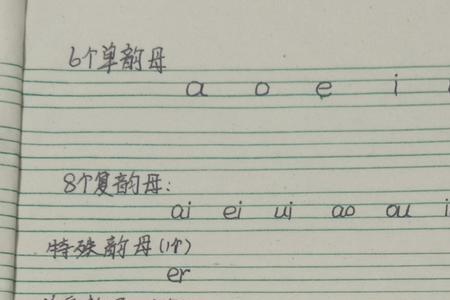 6个单韵母
a o e i
8个复韵母:
ai ei ui ao ou
特殊韵母(1个)
er